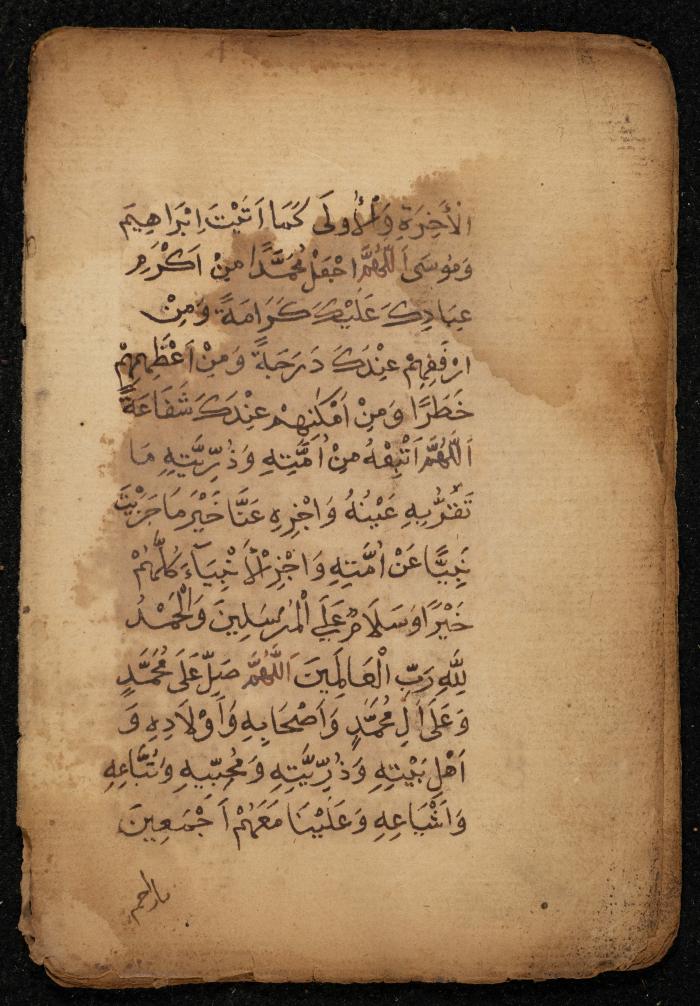 الْأَخِرَةِ وَالْأُولَى كَمَا اَتَيْتَ اِبْرَاهِيمَ
وَمُوسَى اَللّٰهُمَّ اجْعَلْ مُحَمَّدًا مِنْ اَكْرَمِ
عِبَادِكَ عَلَيْكَ كَرَامَةً وَمِنْ
اَرْفَعِهِمْ عِنْدَكَ دَرَجَةً وَمِنْ اَعْظَمِهِمْ
خَطَرًا وَمِنْ اَمْكَنِهِمْ عِنْدَكَ شَفَاعَةً
اَللّٰهُمَّ اَتْبِعْهُ مِنْ اُمَّتِهِ وَذُرِّيَّتِهِ مَا
تَقَرُّ بِهِ عَيْنُهُ وَاجْزِهِ عَنَّا خَيْرَ مَا جَزَيْتَ
نَبِيًّا عَنْ اُمَّتِهِ وَاجْزِ الْأَنْبِيَآءَ كُلَّهُمْ
خَيْرًا وَسَلَامٌ عَلَى الْمُرْسَلِينَ وَالْحَمْدُ
لِلّٰهِ رَبِّ الْعَالَمِينَ اَللّٰهُمَّ صَلِّ عَلَى مُحَمَّدٍ
وَعَلَى اٰلِ مُحَمَّدٍ وَاَصْحَابِهِ وَاَوْلَادِهِ وَ
اَهْلِ بَيْتِهِ وَذُرِّيَّتِهِ وَمُحِبِّيهِ وَتُبَّاعِهِ
وَاَشْيَاعِهِ وَعَلَيْنَا مَعَهُمْ اَجْمَعِينَ